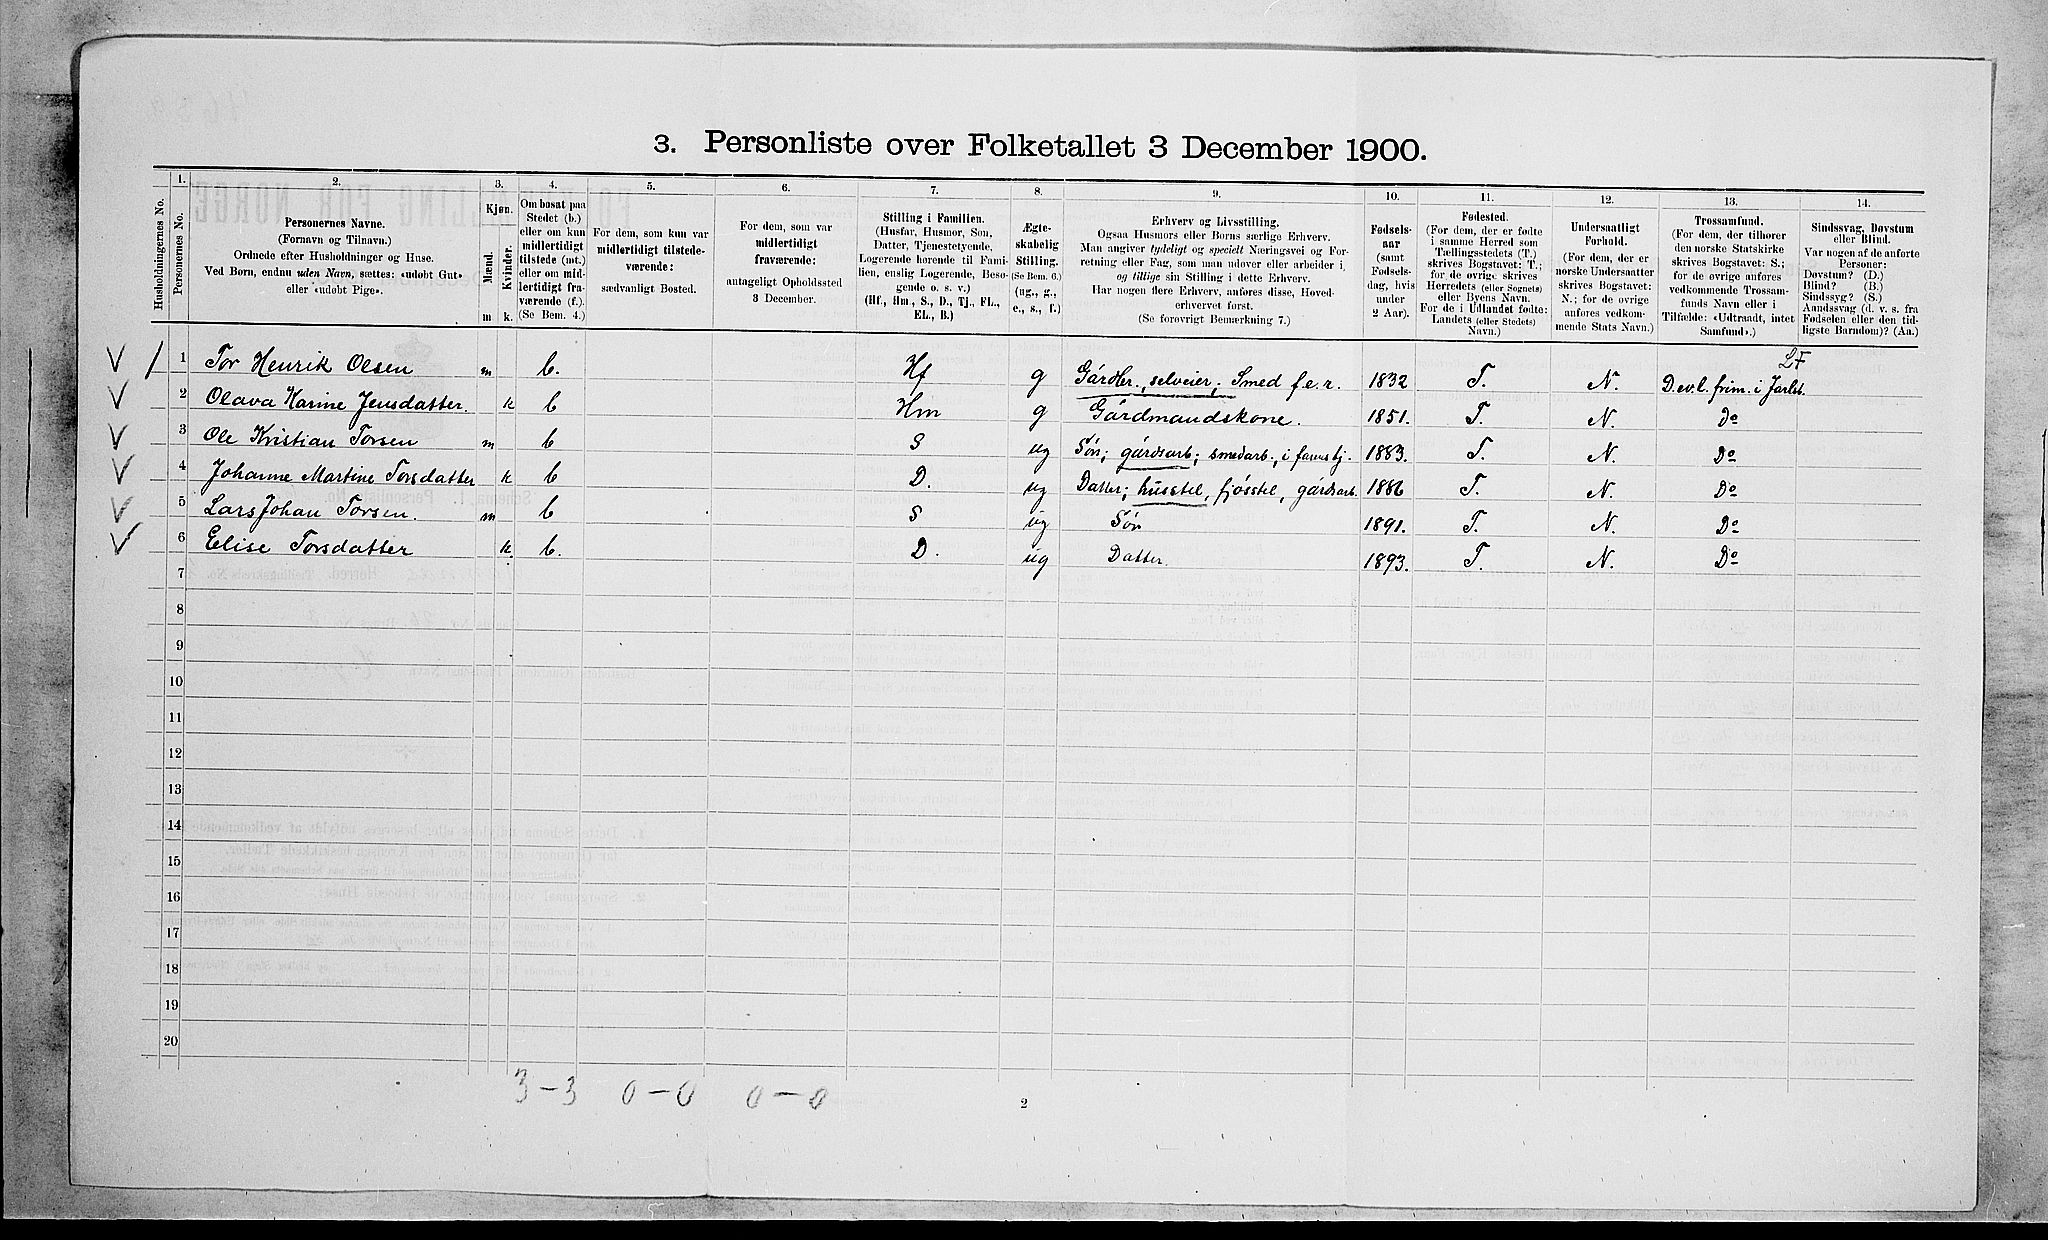 3. Personliste over Folketallet 3 December 1900.
1. 2. 3. 4. 5. 6. 7. 8. 9. 10. 11. 12. 13. 14.
Husholdningernes No.
Personernes No.
Personernes Navne.
(Fornavn og Tilnavn.)
Ordnede efter Husholdninger og Huse.
Ved Børn, endnu uden Navn, sættes: «udøbt Gut»
eller «udøbt Pige».
Kjøn.
Mænd.
Kvinder.
m k.
Om bosat paa
Stedet (b.)
eller om kun
midlertidigt
tilstede (mt.)
eller om mid-
lertidigt fra-
værende (f.).
(Se Bem. 4.)
For dem, som kun var
midlertidigt tilstede-
værende:
sædvanligt Bosted.
For dem, som var
midlertidigt
fraværende:
antageligt Opholdssted
3 December.
Stilling i Familien.
(Husfar, Husmor, Søn,
Datter, Tjenestetyende,
Logerende hørende til Fami-
lien, enslig Logerende, Besø-
gende o. s. v.)
(Hf., Hm., S., D., Tj., FL.,
EL., B.)
Ægte-
skabelig
Stilling.
(Se Bem. 6.)
(ug., g.,
e., s., f.)
Erhverv og Livsstilling.
Ogsaa Husmors eller Børns særlige Erhverv.
Man angiver tydeligt og specielt Næringsvei og For-
retning eller Fag, som man udøver eller arbeider i,
og tillige sin Stilling i dette Erhverv.
Har nogen flere Erhverv, anføres disse, Hoved-
erhvervet først.
(Se forøvrigt Bemerkning 7.)
Fødsels-
aar
(samt
Fødsels-
dag, hvis
under
2 Aar).
Fødested.
(For dem, der er fødte
i samme Herred som
Tællingsstedets (T.)
skrives Bogstavet: T.;
for de øvrige skrives
Herredets (eller Sognets)
eller Byens Navn.
For de i Udlandet fødte:
Landets (eller Stedets)
Navn.)
Undersaatligt
Forhold.
(For dem, der er
norske Undersaatter
skrives Bogstavet:
N.; for de øvrige
anføres vedkom-
mende Stats Navn.)
Trossamfund.
(For dem, der tilhører
den norske Statskirke
skrives Bogstavet: S.;
for de øvrige anføres
vedkommende Trossam-
funds Navn eller i
Tilfælde: «Udtraadt, intet
Samfund».)
Sindssvag, Døvstum
eller Blind.
Var nogen af de anførte
Personer:
Døvstum? (D.)
Blind? (B.)
Sindssyg? (S.)
Aandssvag (d. v. s. fra
Fødselen eller den tid-
ligste Barndom)? (Aa.)
LF
1 Tor Henrik Olsen m b. Hf g Gårdbr., selveier; Smed f.e.r. 1832 T. N. D. ev. l. frim. i Jarlsb.
2 Olava Karine Jensdatter. k b Hm g Gårdmandskone. 1851. T. N. Do
3 Ole Kristian Torsen m b S ug Søn; gårdsarb; smedarb., i farens tj. 1883. T. N. Do
4 Johanne Martine Torsdatter k b D. ug Datter; husstel, fjøsstel, gårdsarb. 1886 T. N. Do
5 Lars Johan Torsen. m b S ug Søn 1891. T. N. Do
6 Elise Torsdatter k. b. D. ug Datter. 1893. T. N. Do
7
8
9
10
11
12
13
14
15
16
17
18
19
20
3 – 3 0 – 0 0 – 0
2